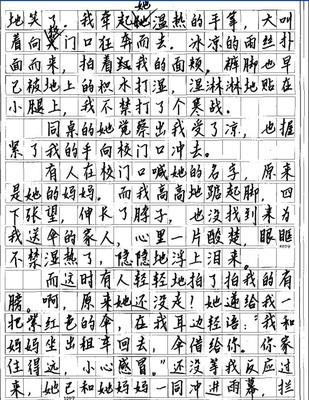 她
地笑了，我牵起她温热的手笔，大叫
着向大门口狂奔而去。冰凉的雨丝扑
面而来，拍着我的面颊，裤脚也早
已被地上的积水打湿，湿淋淋地贴在
小腿上，我不禁打了个寒战。
同桌的她觉察出我受了凉，也握
紧了我的手向校门口冲去。
有人在校门口喊她的名字，原来
是她的妈妈。而我高高地踮起脚，四
下张望，伸长了脖子，也没找到来为
我送伞的家人，心里一片酸楚，眼眶
不禁湿热了，隐隐地浮上泪来。
而这时有人轻轻地拍了拍我的肩
膀。啊，原来她还没走！她递给我一
把紫红色的伞，在我耳边轻语："我和
妈妈坐出租车回去，伞借给你。你家
住得远，小心感冒。"还没等我反应过
来，她已和她妈妈一同冲进雨幕，拦